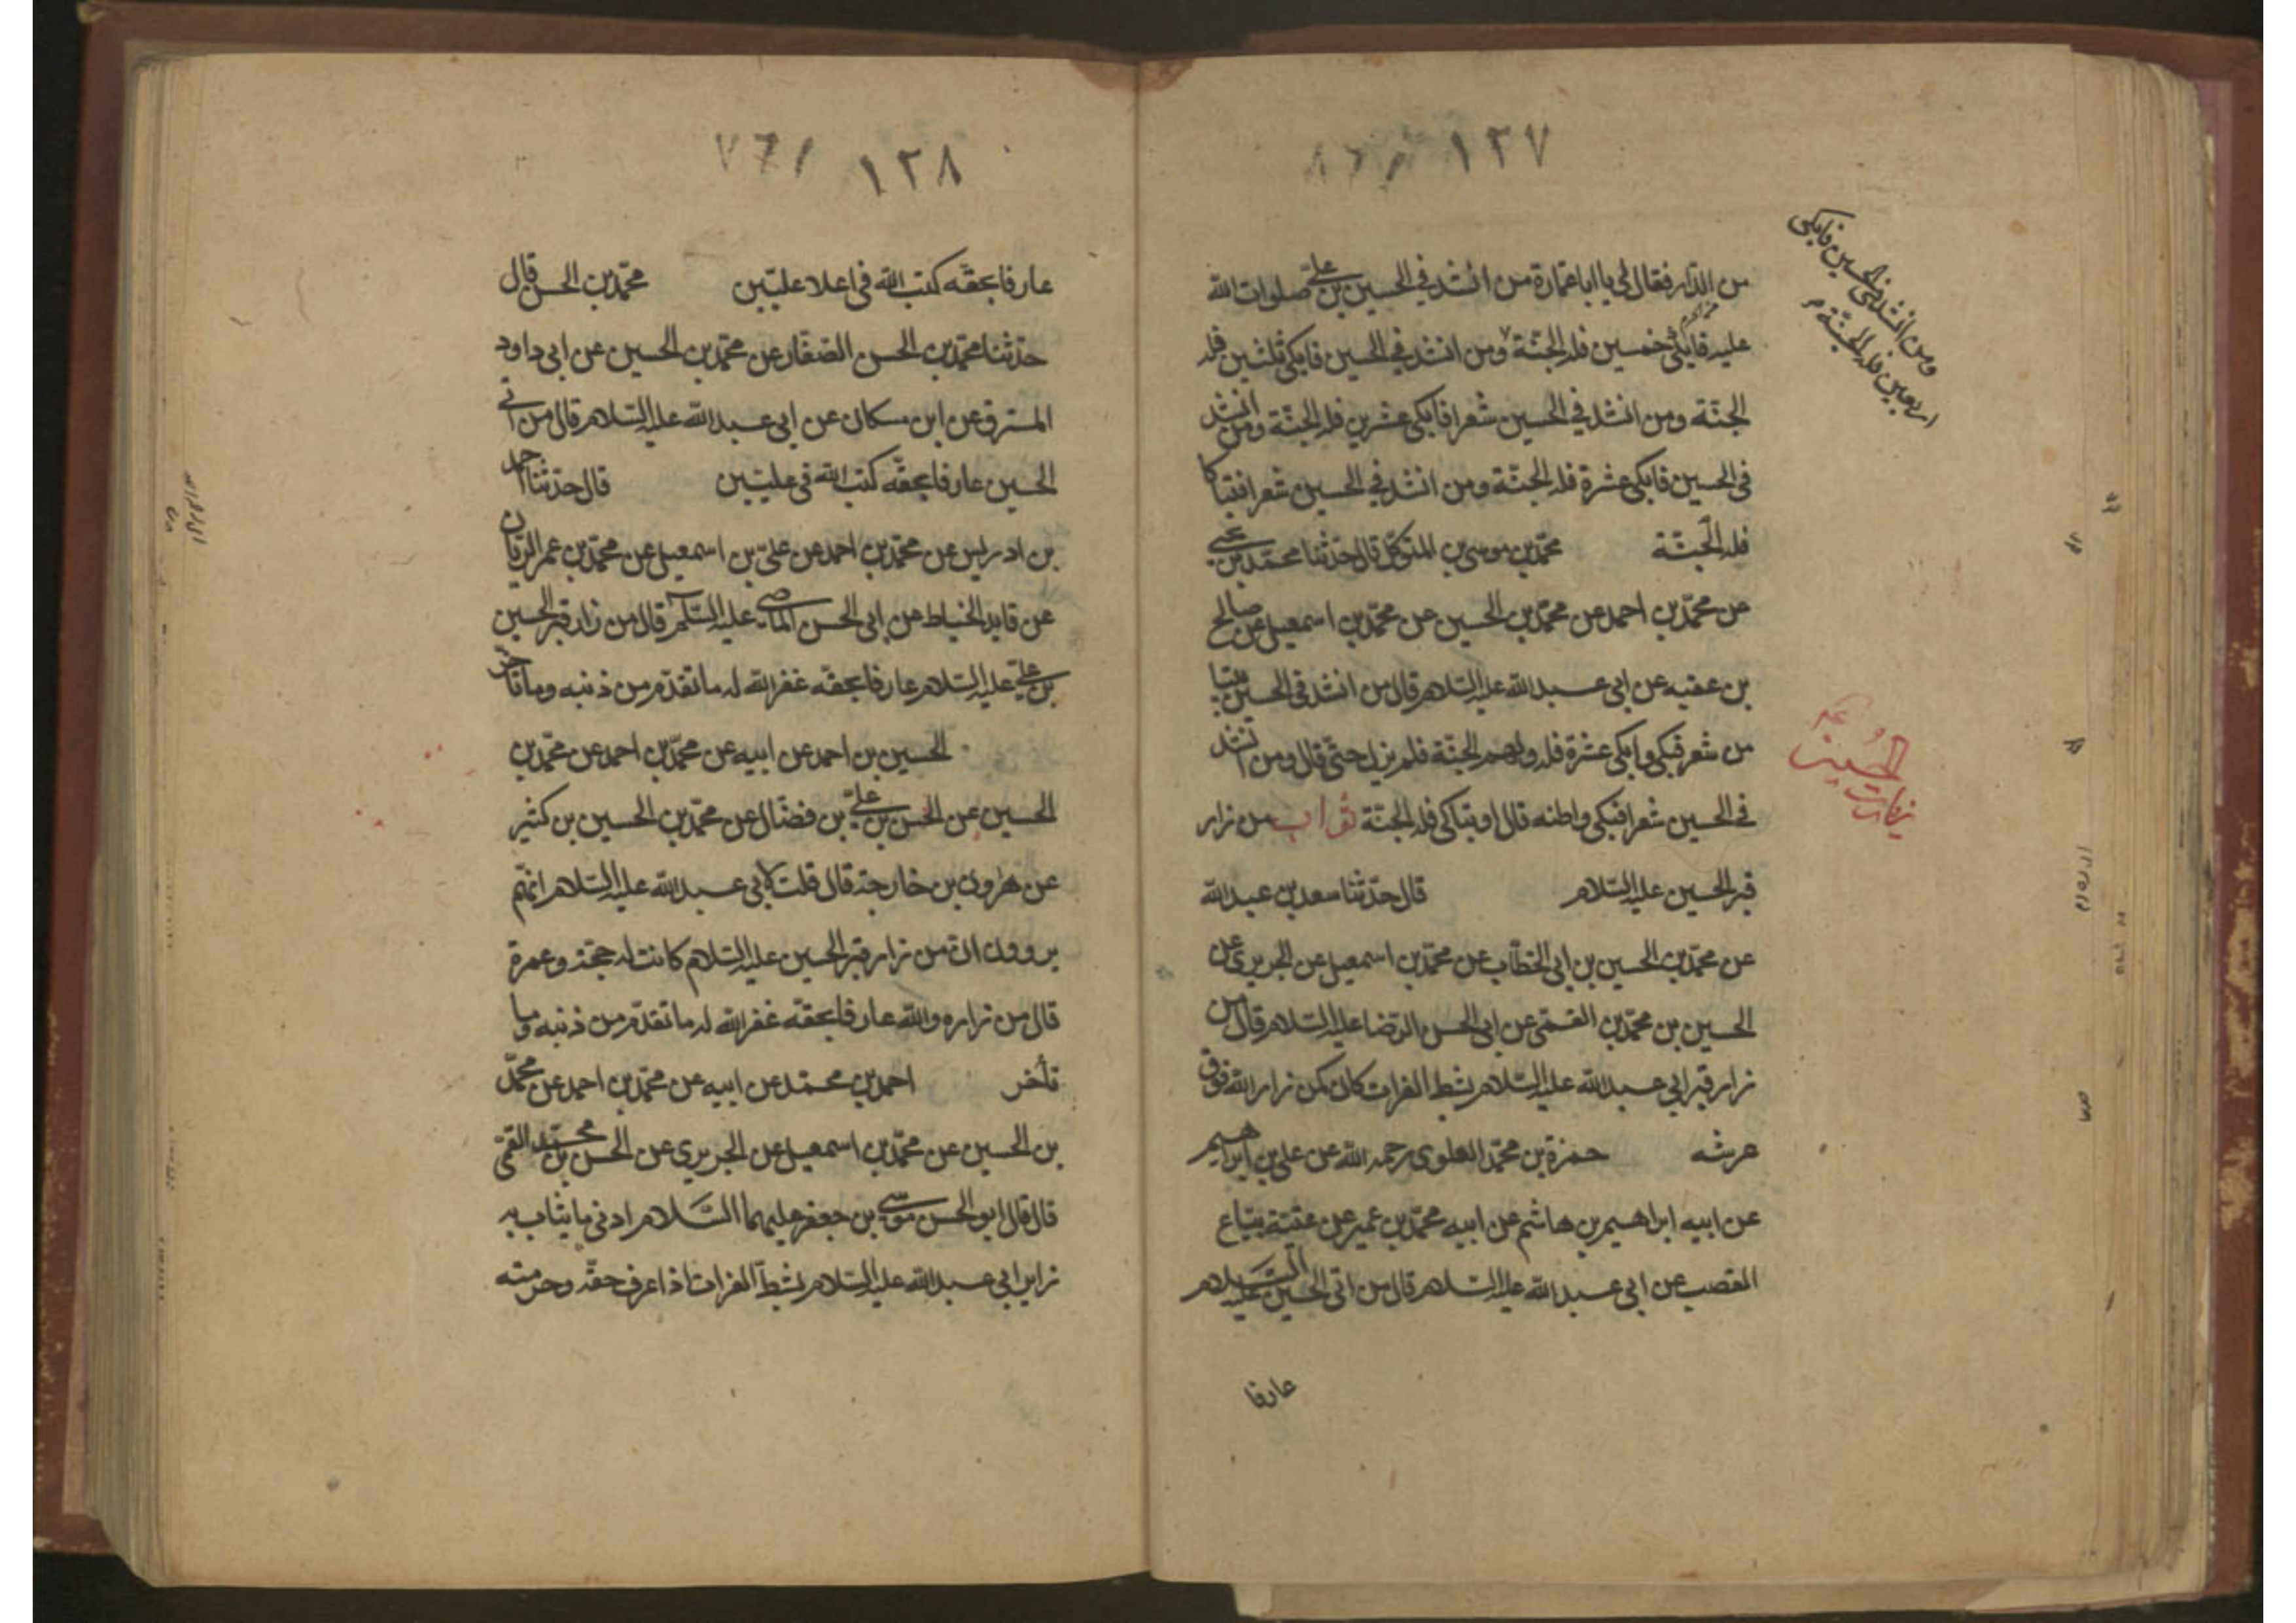 ١٢٧
من الدار فقال لي يا ابا عمارة من انشد في الحسين بن علي صلوات الله
عليه فابكى خمسين فله الجنة ومن انشد في الحسين فابكى ثلثين فله
الجنة ومن انشد في الحسين شعرا فابكى عشرين فله الجنة ومن انشد
في الحسين فابكى عشرة فله الجنة ومن انشد في الحسين شعرا فتباكا
فله الجنة محمد بن موسى بن المتوكل قال حدثنا محمد بن يحيى
عن محمد بن احمد عن محمد بن الحسين عن محمد بن اسمعيل عن صالح
بن عقبه عن ابي عبد الله عليه السلام قال من انشد في الحسين بيتا
من شعر فبكى وابكى عشرة فله ولهم الجنة فلم يزل حتى قال ومن انشد
في الحسين شعرا فبكى واظنه قال او تباكى فله الجنة ثواب من زار
قبر الحسين عليه السلام قال حدثنا سعد بن عبد الله
عن محمد بن الحسين بن ابي الخطاب عن محمد بن اسمعيل عن الجريري عن
الحسين بن محمد القمى عن ابي الحسن الرضا عليه السلام قال من
زار قبر ابي عبد الله عليه السلام بشط الفرات كان كمن زار الله فوق
عرشه حمزة بن محمد العلوى رحمه الله عن علي بن ابراهيم
عن ابيه ابراهيم بن هاشم عن ابيه محمد بن عمير عن عقبة بياع
القصب عن ابي عبد الله عليه السلام قال من اتى الحسين عليه السلام
عارفا
ومن انشد في الحسين فابكى
اربعين فله الجنة
زيارت
الحسين
١٢٨
عارفا بحقه كتب الله في اعلا عليين محمد بن الحسن قال
حدثنا محمد بن الحسن الصفار عن محمد بن الحسين عن ابي داود
المسترق عن ابن مسكان عن ابي عبد الله عليه السلام قال من اتى
الحسين عارفا بحقه كتب الله في عليين قال حدثنا احمد
بن ادريس عن محمد بن احمد عن علي بن اسمعيل عن محمد بن عمر الزيات
عن قايد الخياط عن ابي الحسن الماضي عليه السلام قال من زار قبر الحسين
بن علي عليه السلام عارفا بحقه غفر الله له ما تقدم من ذنبه وما تاخر
الحسين بن احمد عن ابيه عن محمد بن احمد عن محمد بن
الحسين عن الحسن بن علي بن فضال عن محمد بن الحسين بن كثير
عن هرون بن خارجة قال قلت لابي عبد الله عليه السلام انهم
يروون ان من زار قبر الحسين عليه السلام كانت له حجة وعمرة
قال من زاره والله عارفا بحقه غفر الله له ما تقدم من ذنبه وما
تأخر احمد بن محمد عن ابيه عن محمد بن احمد عن محمد
بن الحسين عن محمد بن اسمعيل عن الجريري عن الحسن بن محمد القمى
قال قال ابو الحسن موسى بن جعفر عليهما السلام ادنى ما يثاب به
زاير ابي عبد الله عليه السلام بشط الفرات اذا عرف حقه وحرمته